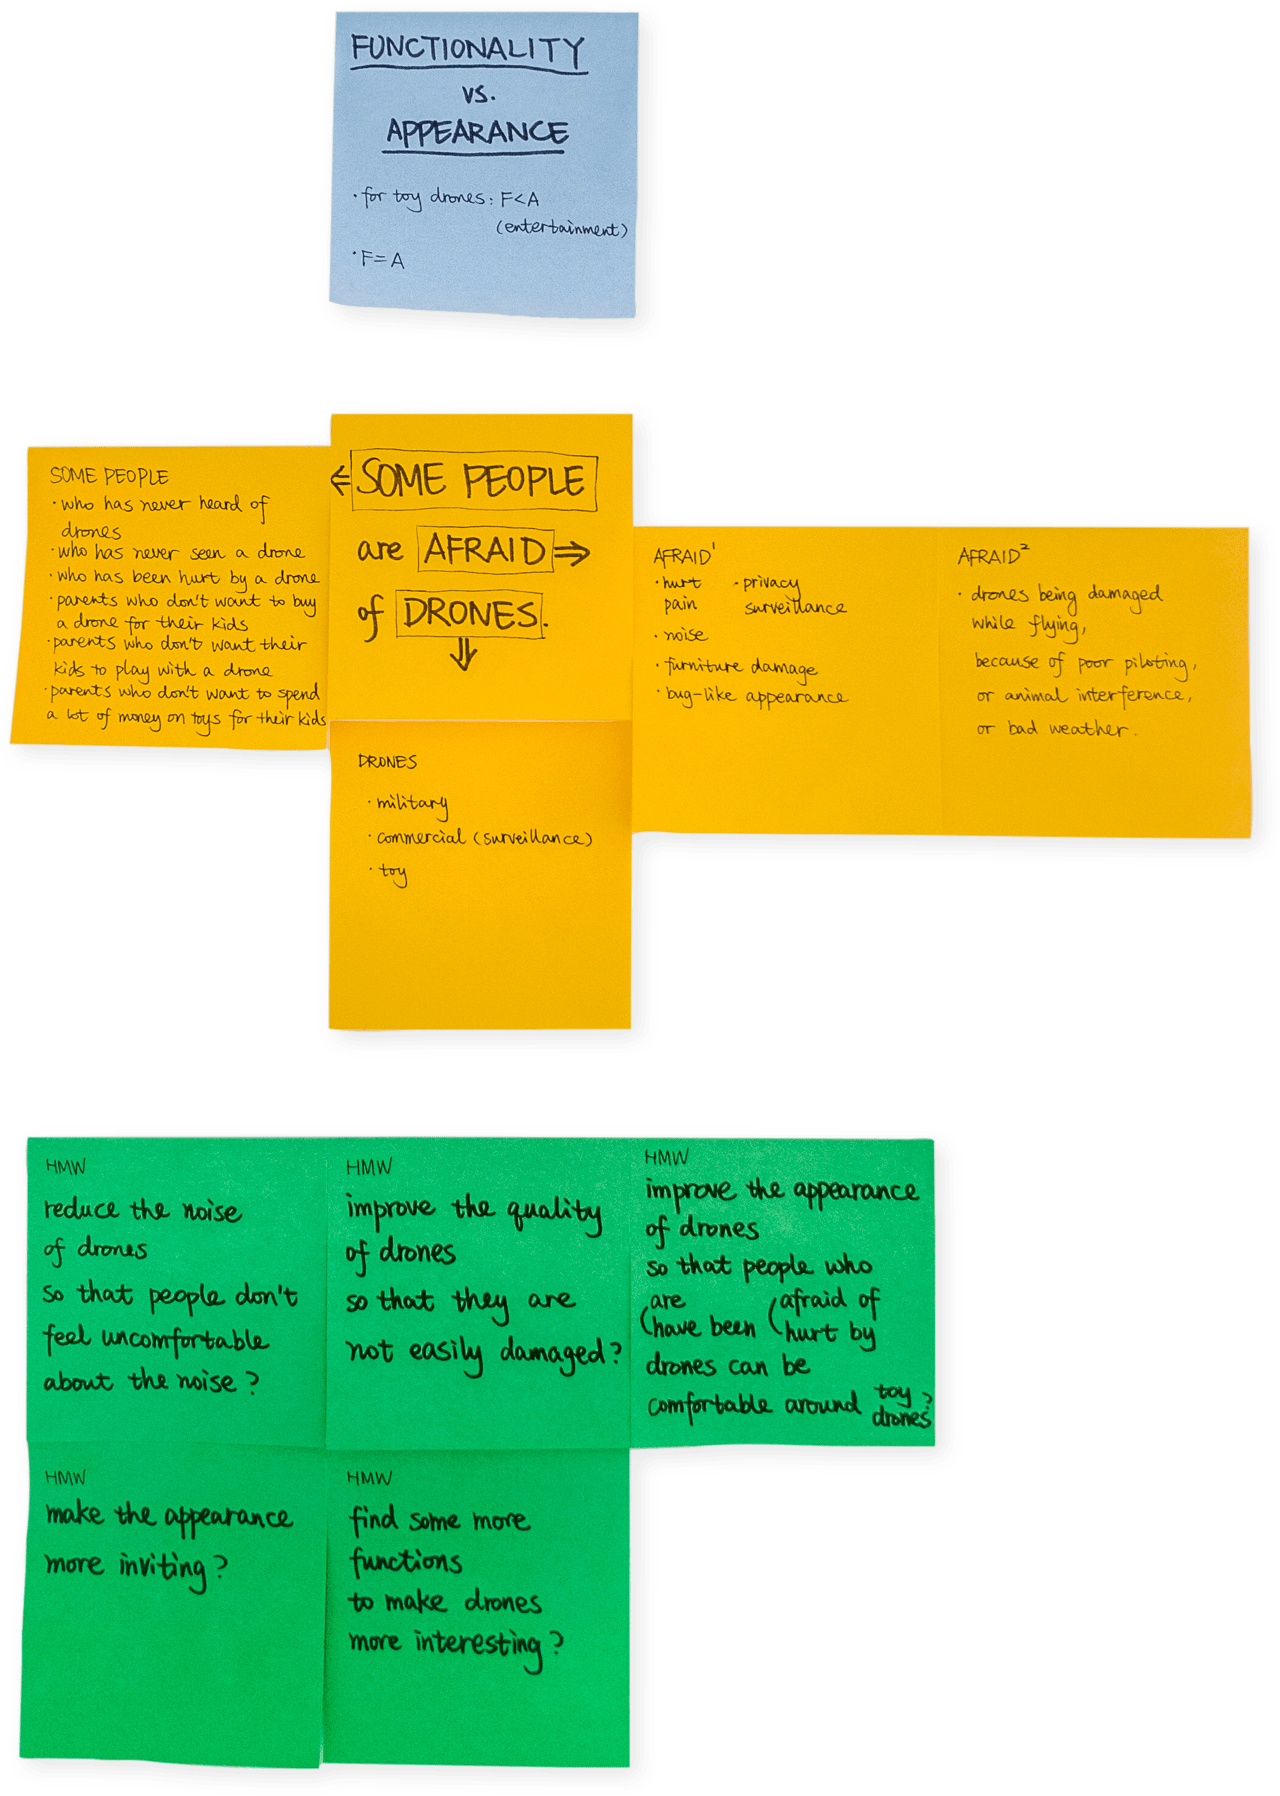 FUNCTIONALITY
vs.
APPEARANCE
· for toy drones: F<A
(entertainment)
· F=A
SOME PEOPLE
· who has never heard of
drones
· who has never seen a drone
· who has been hurt by a drone
· parents who don't want to buy
a drone for their kids
· parents who don't want their
kids to play with a drone
· parents who don't want to spend
a lot of money on toys for their kids
⇐ SOME PEOPLE
are AFRAID ⇒
of DRONES.
⇓
AFRAID¹
· hurt
pain
· noise
· furniture damage
· bug-like appearance
· privacy
surveillance
AFRAID²
· drones being damaged
while flying,
because of poor piloting,
or animal interference,
or bad weather.
DRONES
· military
· commercial (surveillance)
· toy
HMW
reduce the noise
of drones
so that people don't
feel uncomfortable
about the noise?
HMW
improve the quality
of drones
so that they are
not easily damaged?
HMW
improve the appearance
of drones
so that people who
(are (afraid of
have been hurt by
drones can be
comfortable around toy
drones?
HMW
make the appearance
more inviting?
HMW
find some more
functions
to make drones
more interesting?